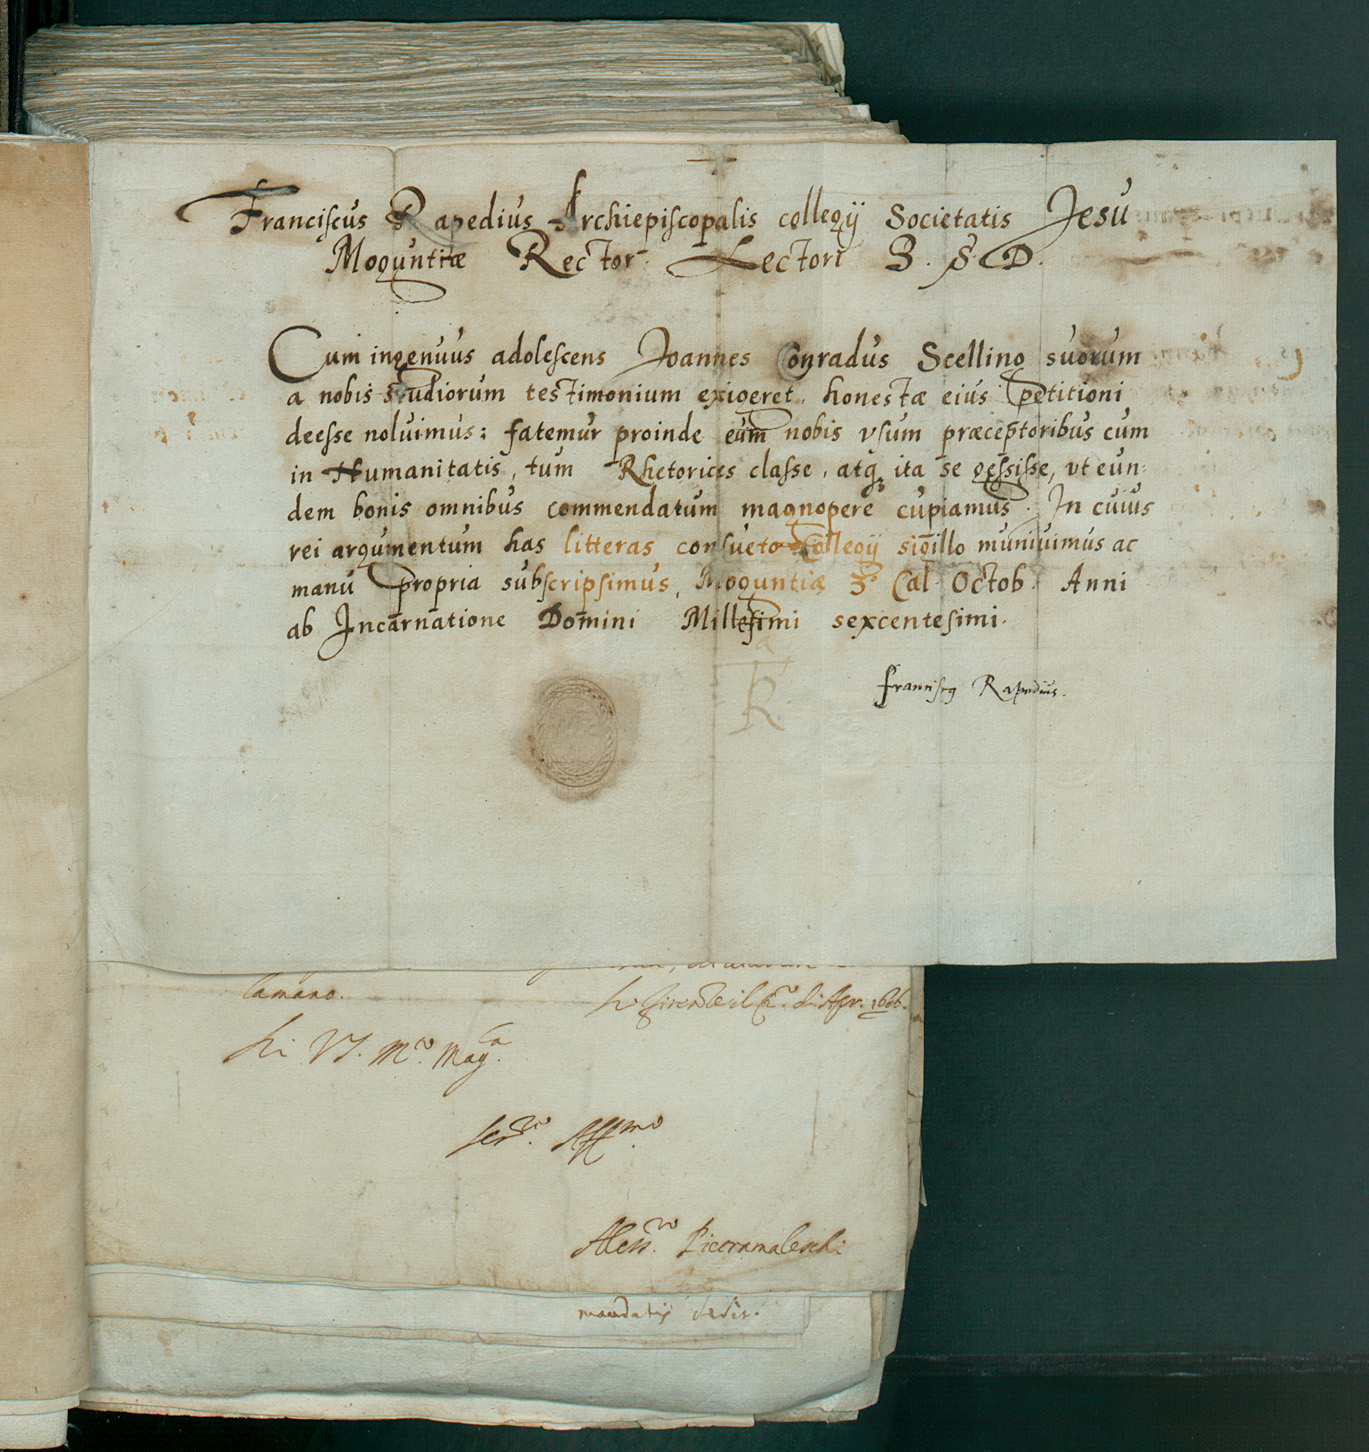 Franciscus Rapedius Archiepiscopalis collegij Societatis Jesu
Moguntiæ Rector Lectori S. S. D.
Cum ingenuus adolescens Joannes Conradus Scelling suorum
a nobis studiorum testimonium exigeret, honestæ eius petitioni
deesse noluimus; fatemur proinde eum nobis vsum præceptoribus cum
in Humanitatis, tum Rhetorices classe, atq. ita se gessisse, vt eun:
dem bonis omnibus commendatum magnopere cupiamus. In cuius
rei argumentum has litteras consueto Collegij sigillo muniuimus ac
manu propria subscripsimus, Moguntiæ 3º Cal Octob. Anni
ab Incarnatione Domini Millesimi sexcentesimi.
Franciscus Rapedius.
lamano.
di Apr. 1606.
Di VS. Mto. Magca.
Serre. Affmo.
Aless.ro Pietramaleschi
mandatis dedit.